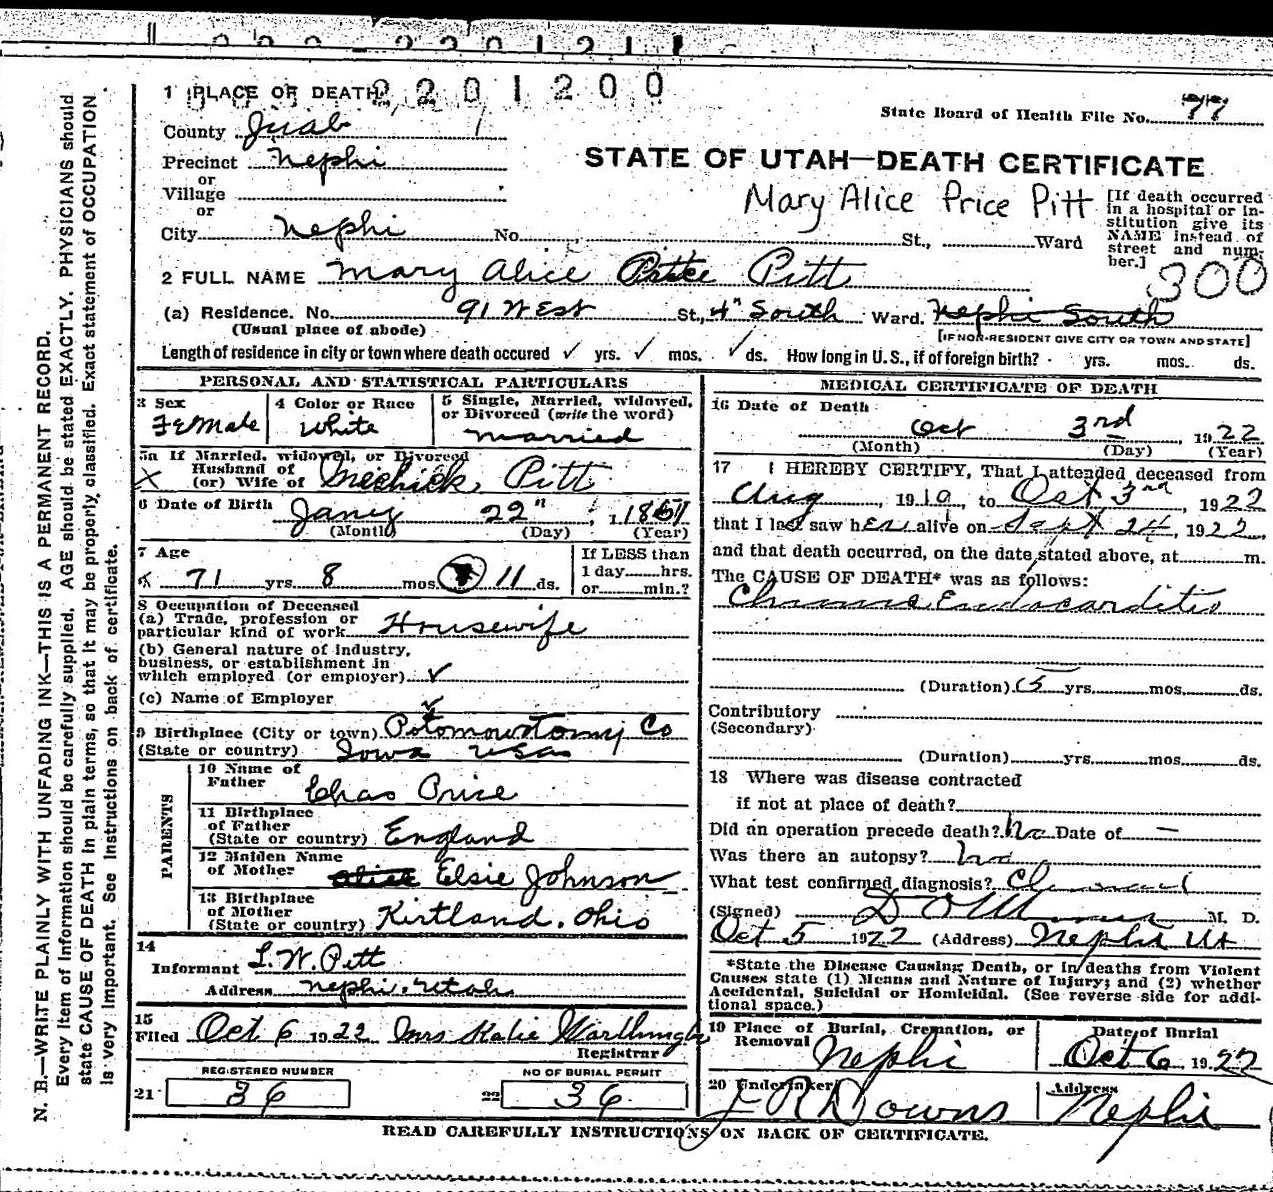 2201200
1 PLACE OF DEATH
State Board of Health File No. 77
County Juab
STATE OF UTAH—DEATH CERTIFICATE
Precinct Nephi
or
Village
or
Mary Alice Price Pitt
[If death occurred
in a hospital or in-
stitution give its
NAME instead of
street and num-
ber.]
City Nephi No. St., Ward
300
2 FULL NAME Mary Alice Pitt
(a) Residence. No. 91 West St., 4th South Ward. Nephi South
(Usual place of abode)
[IF NON-RESIDENT GIVE CITY OR TOWN AND STATE]
Length of residence in city or town where death occured ✓ yrs. ✓ mos. ✓ ds. How long in U.S., if of foreign birth? yrs. mos. ds.
PERSONAL AND STATISTICAL PARTICULARS
3 Sex
Female
4 Color or Race
White
5 Single, Married, widowed,
or Divorced (write the word)
married
5a If Married, widowed, or Divorced
Husband of
(or) Wife of Pitt
6 Date of Birth Jany 22" 1851
(Month) (Day) (Year)
7 Age
71 yrs. 8 mos. 11 ds.
If LESS than
1 day hrs.
or min.?
8 Occupation of Deceased
(a) Trade, profession or
particular kind of work Housewife
(b) General nature of industry,
business, or establishment in
which employed (or employer) ✓
(c) Name of Employer ✓
9 Birthplace (City or town) Potomowtomy Co
(State or country) Iowa USA
PARENTS
10 Name of
Father Chas Price
11 Birthplace
of Father
(State or country) England
12 Maiden Name
of Mother Elsie Johnson
13 Birthplace
of Mother
(State or country) Kirtland. Ohio
14
Informant L. W. Pitt
Address Nephi. Utah
15
Filed Oct 6 1922 Mrs Katie
Registrar
REGISTERED NUMBER
21 36
NO OF BURIAL PERMIT
22 36
MEDICAL CERTIFICATE OF DEATH
16 Date of Death
Oct 3rd, 1922
(Month) (Day) (Year)
17 I HEREBY CERTIFY, That I attended deceased from
Aug, 1919 to Oct 3rd, 1922
that I last saw her alive on Sept 24, 1922,
and that death occurred, on the date stated above, at m.
The CAUSE OF DEATH* was as follows:
Chronic Endocarditis
(Duration) 5 yrs. mos. ds.
Contributory
(Secondary)
(Duration) yrs. mos. ds.
18 Where was disease contracted
if not at place of death?
Did an operation precede death? No Date of —
Was there an autopsy? no
What test confirmed diagnosis? Clinical
(Signed) M. D.
Oct 5 1922 (Address) Nephi Ut
*State the Disease Causing Death, or in deaths from Violent
Causes state (1) Means and Nature of Injury; and (2) whether
Accidental, Suicidal or Homicidal. (See reverse side for addi-
tional space.)
19 Place of Burial, Cremation, or
Removal Nephi
Date of Burial
Oct 6 1922
20 Undertaker
J R Downs
Address
Nephi
READ CAREFULLY INSTRUCTIONS ON BACK OF CERTIFICATE.
N. B.—WRITE PLAINLY WITH UNFADING INK—THIS IS A PERMANENT RECORD.
Every item of information should be carefully supplied. AGE should be stated EXACTLY. PHYSICIANS should
state CAUSE OF DEATH in plain terms, so that it may be properly classified. Exact statement of OCCUPATION
is very important. See instructions on back of certificate.